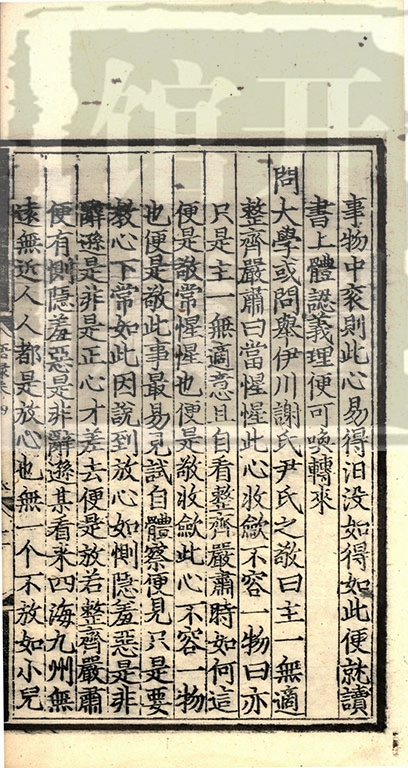 事物中衮則此心易得汨没如得如此便就讀
書上體認義理便可喚轉來
問大學或問舉伊川謝氏尹氏之敬曰主一無適
整齊嚴肅曰當惺惺此心收斂不容一物曰亦
只是主一無適意且自看整齊嚴肅時如何這
便是敬常惺惺也便是敬收斂此心不容一物
也便是敬此事最易見試自體察便見只是要
教心下常如此因説到放心如惻隱羞惡是非
辭遜是非是正心才差去便是放若整齊嚴肅
便有惻隱羞惡是非辭遜某看来四海九州無
遠無近人人都是放心也無一个不放如小兒